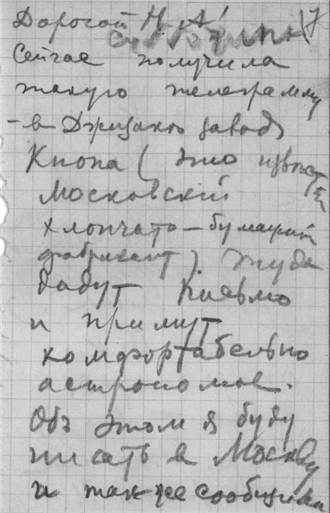 Дорогой Н. А!
Сейчас получила
такую телеграмму
– в Джизаке завод
Кнопа (это извест
Московский
хлопчато-бумажн
фабрикант) туда
дадут письмо
и примут
комфортабельно
астрономов.
Объ этом я буду
писать в Москву
и также сообщила